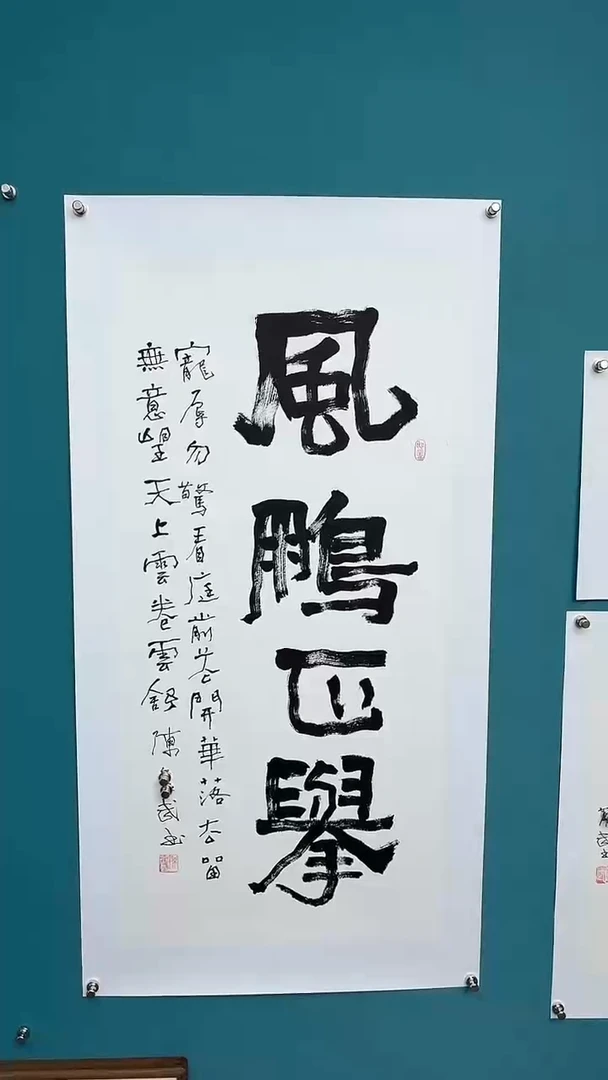 風鵬正舉
寵辱勿驚看庭前花開華落去留
無意望天上雲卷雲舒 陳 武书